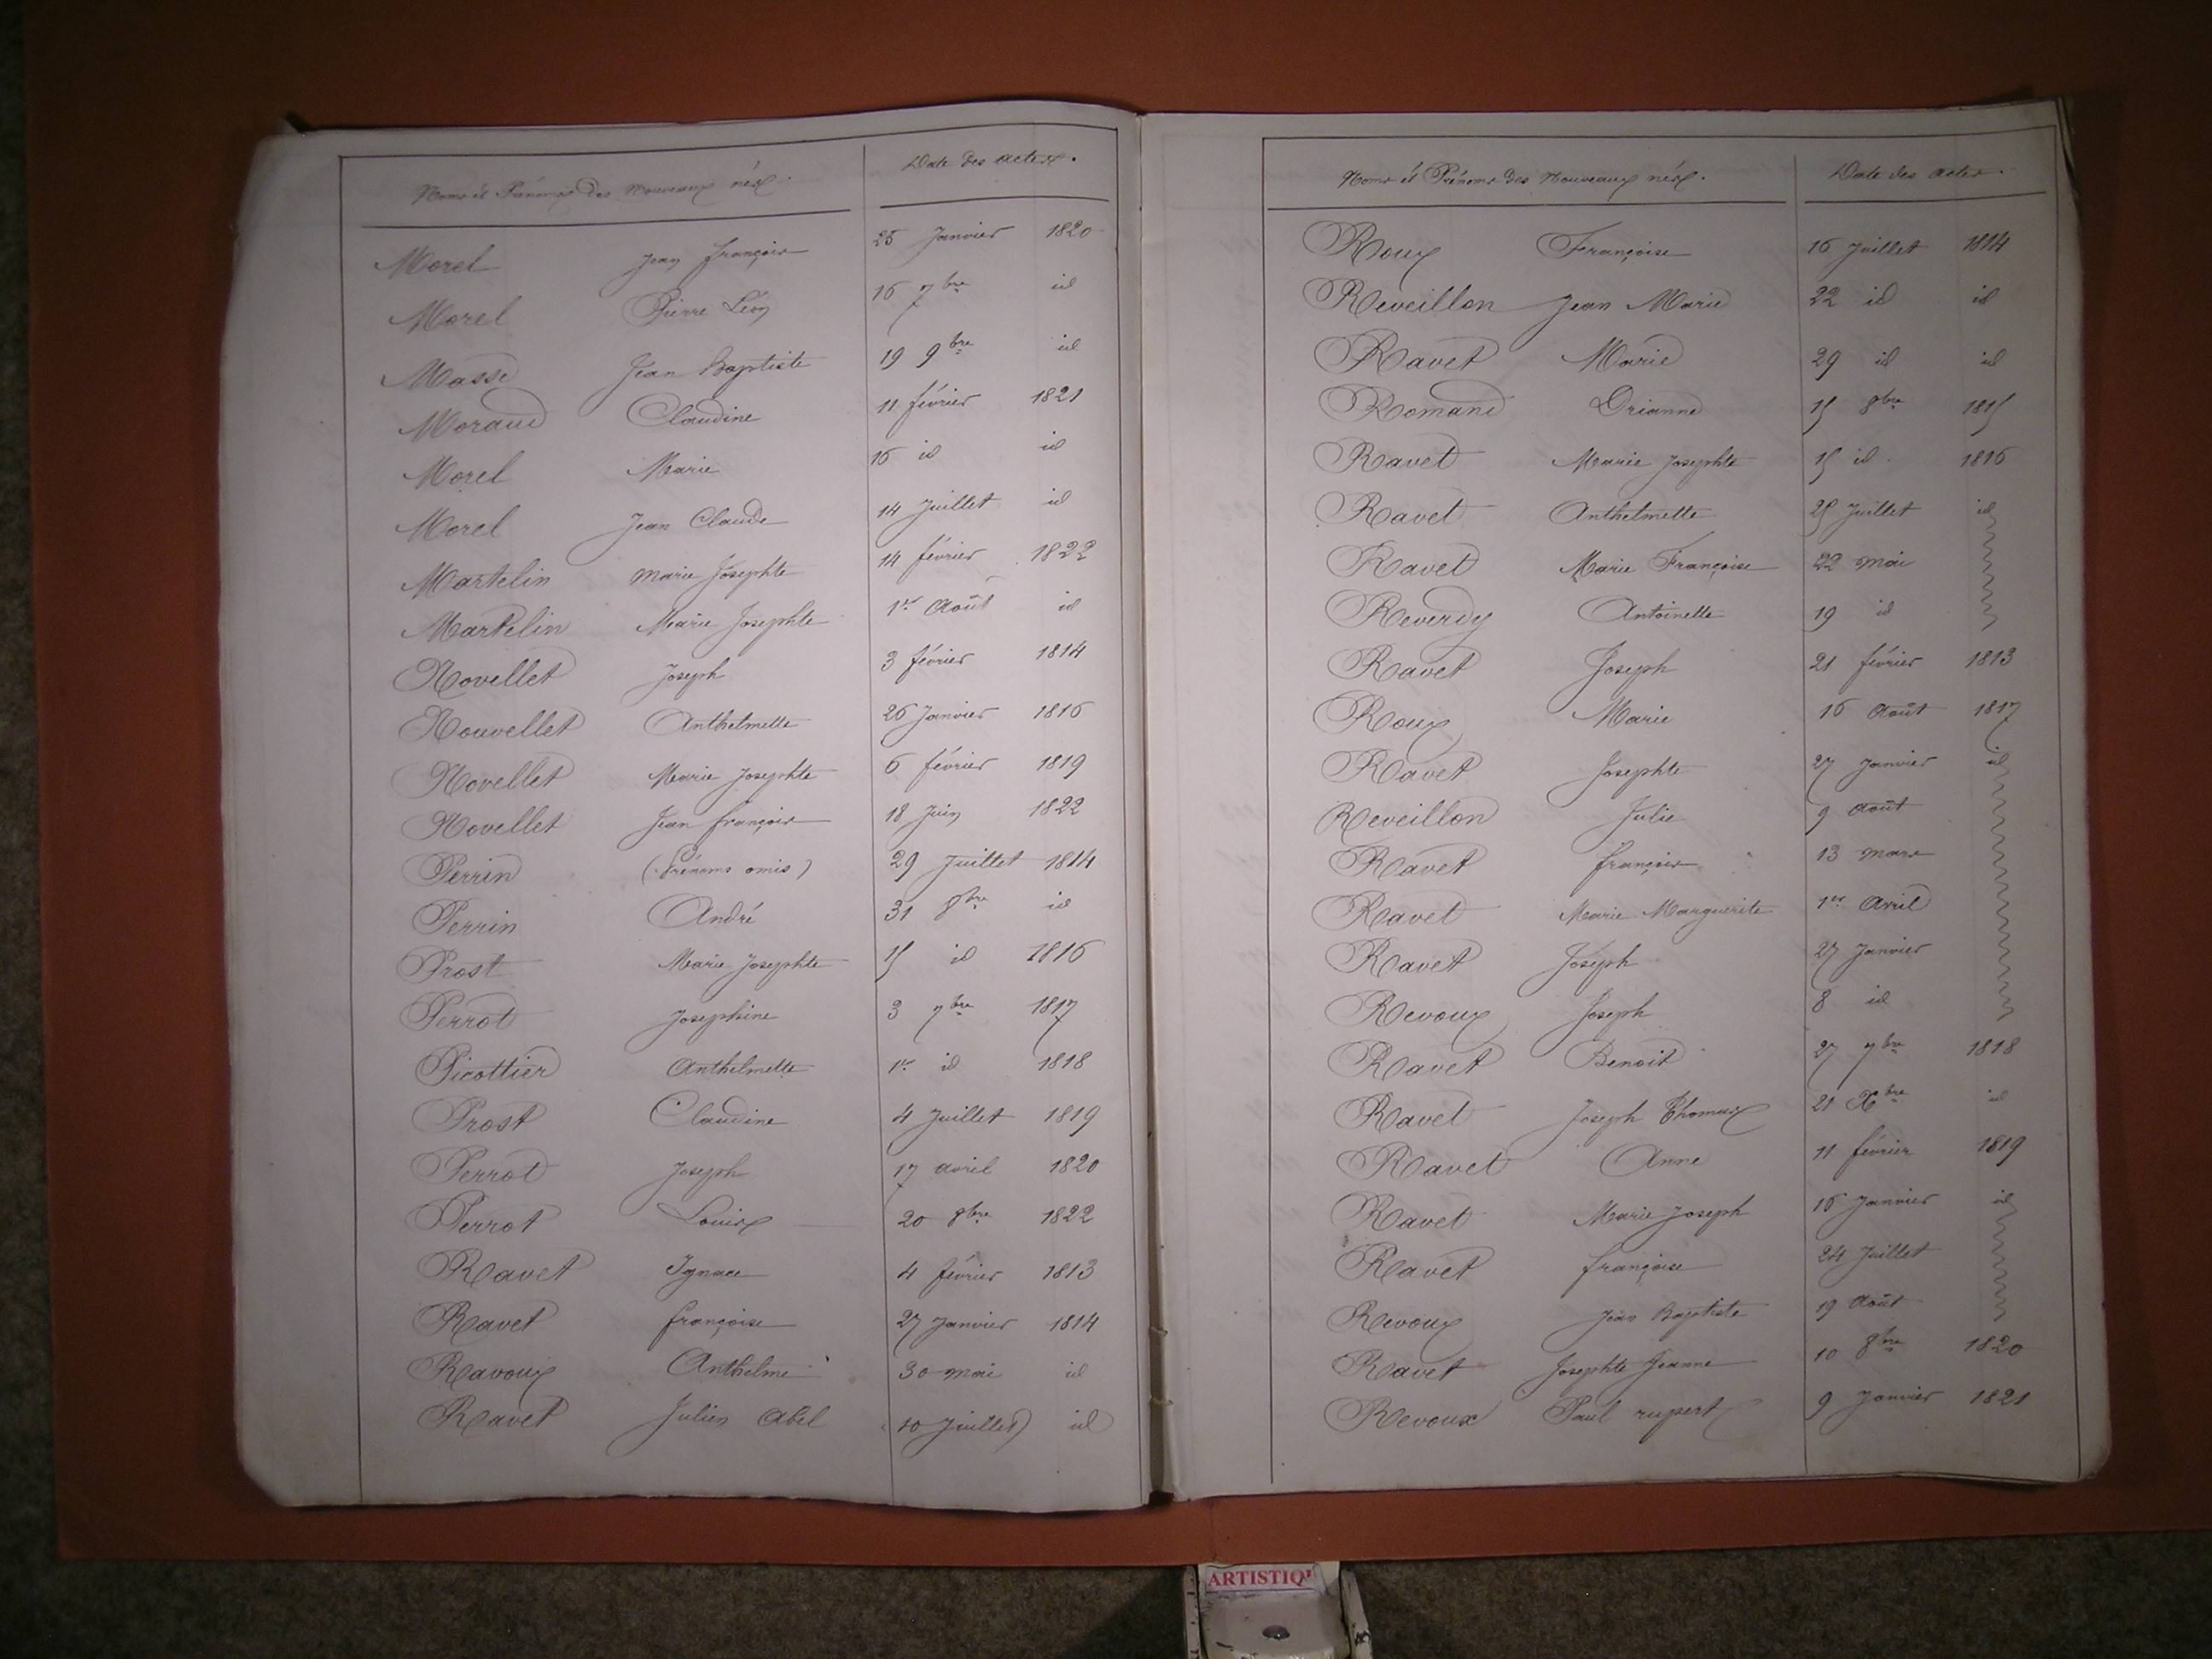 Noms et Prénoms des Nouveaux nés. Date des actes.
Morel Jean françois 25 Janvier 1820
Morel Pierre Léon 16 7bre id
Masse Jean Baptiste 19 9bre id
Moraud Claudine 11 février 1821
Morel Marie 16 id id
Morel Jean Claude 14 Juillet id
Martelin Marie Josephte 14 février 1822
Martelin Marie Josephte 1er Août id
Novellet Joseph 3 février 1814
Nouvellet Anthelmette 26 Janvier 1816
Novellet Marie Josephte 6 février 1819
Novellet Jean françois 18 Juin 1822
Perrin (Prénoms omis) 29 Juillet 1814
Perrin André 31 8bre id
Prost Marie Josephte 15 id 1816
Perrot Josephine 3 7bre 1817
Picottier Anthelmette 1er id 1818
Prost Claudine 4 Juillet 1819
Perrot Joseph 17 avril 1820
Perrot Louis 20 8bre 1822
Ravet Ignace 4 février 1813
Ravet françoise 27 Janvier 1814
Ravoux Anthelme 30 mai id
Ravet Julien Abel 10 Juillet id
Noms et Prénoms des Nouveaux nés. Date des actes.
Roux Françoise 16 Juillet 1814
Reveillon Jean Marie 22 id id
Ravet Marie 29 id id
Romand 15 8bre 1815
Ravet Marie Josephte 15 id 1816
Ravet Anthelmette 25 Juillet id
Ravet Marie Françoise 22 mai
Reverdy Antoinette 19 id
Ravet Joseph 21 février 1813
Roux Marie 16 Août 1817
Ravet Josephte 27 Janvier id
Reveillon Julie 9 août
Ravet françois 13 mars
Ravet Marie Marguerite 1er Avril
Ravet Joseph 27 Janvier
Revoux Joseph 8 id
Ravet Benoit 27 7bre 1818
Ravet Joseph Thomas 21 Xbre id
Ravet Anne 11 février 1819
Ravet Marie Joseph 16 Janvier id
Ravet françoise 24 Juillet
Revoux Jean Baptiste 19 Août
Ravet Josephte Jeanne 10 8bre 1820
Revoux Paul rupert 9 Janvier 1821
ARTISTIQ